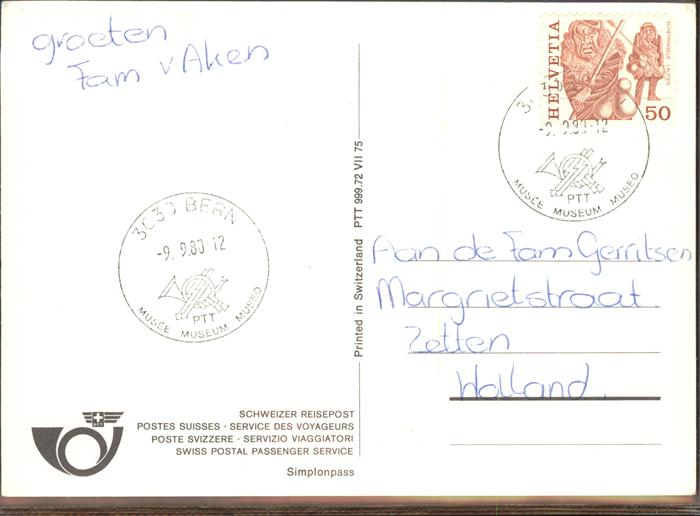 groeten
Fam v Aken
HELVETIA
50
3030 BERN
-9. 9.80-12
PTT
MUSÉE MUSEUM MUSEO
-9. 9.80-12
PTT
MUSÉE MUSEUM MUSEO
Printed in Switzerland PTT 999.72 VII 75
Aan de Fam Gerritsen
Margrietstraat
Zetten
Holland
SCHWEIZER REISEPOST
POSTES SUISSES · SERVICE DES VOYAGEURS
POSTE SVIZZERE · SERVIZIO VIAGGIATORI
SWISS POSTAL PASSENGER SERVICE
Simplonpass